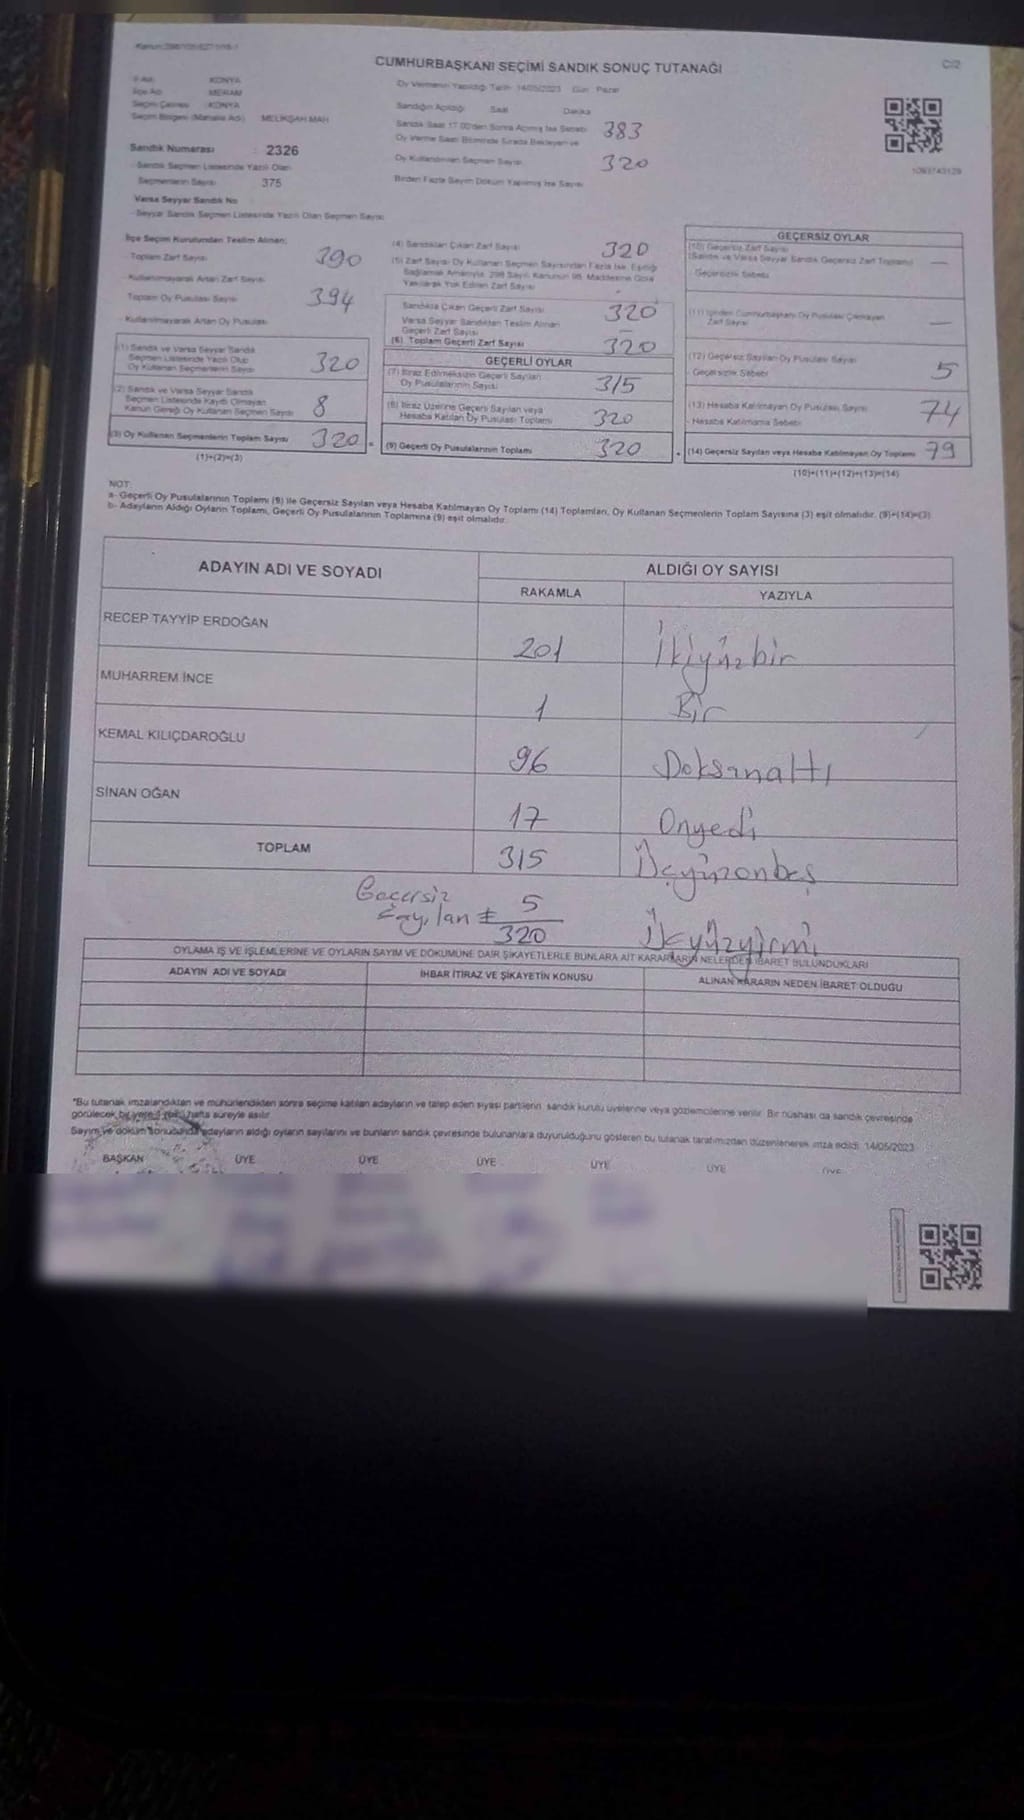 CUMHURBAŞKANI SEÇİMİ SANDIK SONUÇ TUTANAĞI
C/2
Oy Vermenin Yapıldığı Tarih 14/05/2023 Gün Pazar
İl Adı KONYA
İlçe Adı MERAM
Seçim Çevresi KONYA
Seçim Bölgesi (Mahalle Adı) MELİKŞAH MAH
Sandık Numarası 2326
Sandık Seçmen Listesinde Yazılı Olan
Seçmenlerin Sayısı 375
Varsa Seyyar Sandık No
Seyyar Sandık Seçmen Listesinde Yazılı Olan Seçmen Sayısı
Sandığın Açıldığı Saat Dakika
Sandık Saat 17.00'den Sonra Açılmış İse Sebebi 383
Oy Verme Saati Bitiminde Sırada Bekleyen ve
Oy Kullandırılan Seçmen Sayısı 320
Birden Fazla Sayım Döküm Yapılmış İse Sayısı
İlçe Seçim Kurulundan Teslim Alınan;
Toplam Zarf Sayısı 390
Kullanılmayarak Artan Zarf Sayısı
Toplam Oy Pusulası Sayısı 394
Kullanılmayarak Artan Oy Pusulası
(1) Sandık ve Varsa Seyyar Sandık
Seçmen Listesinde Yazılı Olup
Oy Kullanan Seçmenlerin Sayısı 320
(2) Sandık ve Varsa Seyyar Sandık
Seçmen Listesinde Kaydı Olmayan
Kanun Gereği Oy Kullanan Seçmen Sayısı 8
(3) Oy Kullanan Seçmenlerin Toplam Sayısı 320
(1)+(2)=(3)
(4) Sandıktan Çıkan Zarf Sayısı 320
(5) Zarf Sayısı Oy Kullanan Seçmen Sayısından Fazla İse, Eşitliği
Sağlamak Amacıyla, 298 Sayılı Kanunun 98. Maddesine Göre
Yakılarak Yok Edilen Zarf Sayısı
Sandıkta Çıkan Geçerli Zarf Sayısı 320
Varsa Seyyar Sandıktan Teslim Alınan
Geçerli Zarf Sayısı —
(6) Toplam Geçerli Zarf Sayısı 320
GEÇERLİ OYLAR
(7) İtiraz Edilmeksizin Geçerli Sayılan
Oy Pusulalarının Sayısı 315
(8) İtiraz Üzerine Geçerli Sayılan veya
Hesaba Katılan Oy Pusulası Toplamı 320
(9) Geçerli Oy Pusulalarının Toplamı 320
GEÇERSİZ OYLAR
(10) Geçersiz Zarf Sayısı
(Sandık ve Varsa Seyyar Sandık Geçersiz Zarf Toplamı) —
Geçersizlik Sebebi
(11) İçinden Cumhurbaşkanı Oy Pusulası Çıkmayan
Zarf Sayısı —
(12) Geçersiz Sayılan Oy Pusulası Sayısı 5
Geçersizlik Sebebi
(13) Hesaba Katılmayan Oy Pusulası Sayısı 74
Hesaba Katılmama Sebebi
(14) Geçersiz Sayılan veya Hesaba Katılmayan Oy Toplamı 79
(10)+(11)+(12)+(13)=(14)
NOT:
a- Geçerli Oy Pusulalarının Toplamı (9) ile Geçersiz Sayılan veya Hesaba Katılmayan Oy Toplamı (14) Toplamları, Oy Kullanan Seçmenlerin Toplam Sayısına (3) eşit olmalıdır. (9)+(14)=(3)
b- Adayların Aldığı Oyların Toplamı, Geçerli Oy Pusulalarının Toplamına (9) eşit olmalıdır.
ADAYIN ADI VE SOYADI ALDIĞI OY SAYISI
RAKAMLA YAZIYLA
RECEP TAYYİP ERDOĞAN 201 İkiyüzbir
MUHARREM İNCE 1 Bir
KEMAL KILIÇDAROĞLU 96 Doksanaltı
SİNAN OĞAN 17 Onyedi
TOPLAM 315 Üçyüzonbeş
Geçersiz
Sayılan 5
320 Üçyüzyirmi
OYLAMA İŞ VE İŞLEMLERİNE VE OYLARIN SAYIM VE DÖKÜMÜNE DAİR ŞİKAYETLERLE BUNLARA AİT KARARLARIN NELERDEN İBARET BULUNDUKLARI
ADAYIN ADI VE SOYADI İHBAR İTİRAZ VE ŞİKAYETİN KONUSU ALINAN KARARIN NEDEN İBARET OLDUĞU
*Bu tutanak imzalandıktan ve mühürlendikten sonra seçime katılan adayların ve talep eden siyasi partilerin sandık kurulu üyelerine veya gözlemcilerine verilir. Bir nüshası da sandık çevresinde
görülecek bir yere 1 (bir) hafta süreyle asılır.
Sayım ve döküm sonucunda adayların aldığı oyların sayılarını ve bunların sandık çevresinde bulunanlara duyurulduğunu gösteren bu tutanak tarafımızdan düzenlenerek imza edildi. 14/05/2023
BAŞKAN ÜYE ÜYE ÜYE ÜYE ÜYE ÜYE